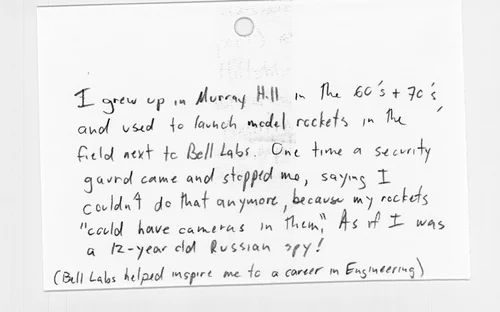 I grew up in Murray Hill in the 60's + 70's,
and used to launch model rockets in the
field next to Bell Labs. One time a security
gaurd came and stopped me, saying I
couldn't do that anymore, because my rockets
"could have cameras in them," As if I was
a 12-year old Russian spy!
(Bell Labs helped inspire me to a career in Engineering)